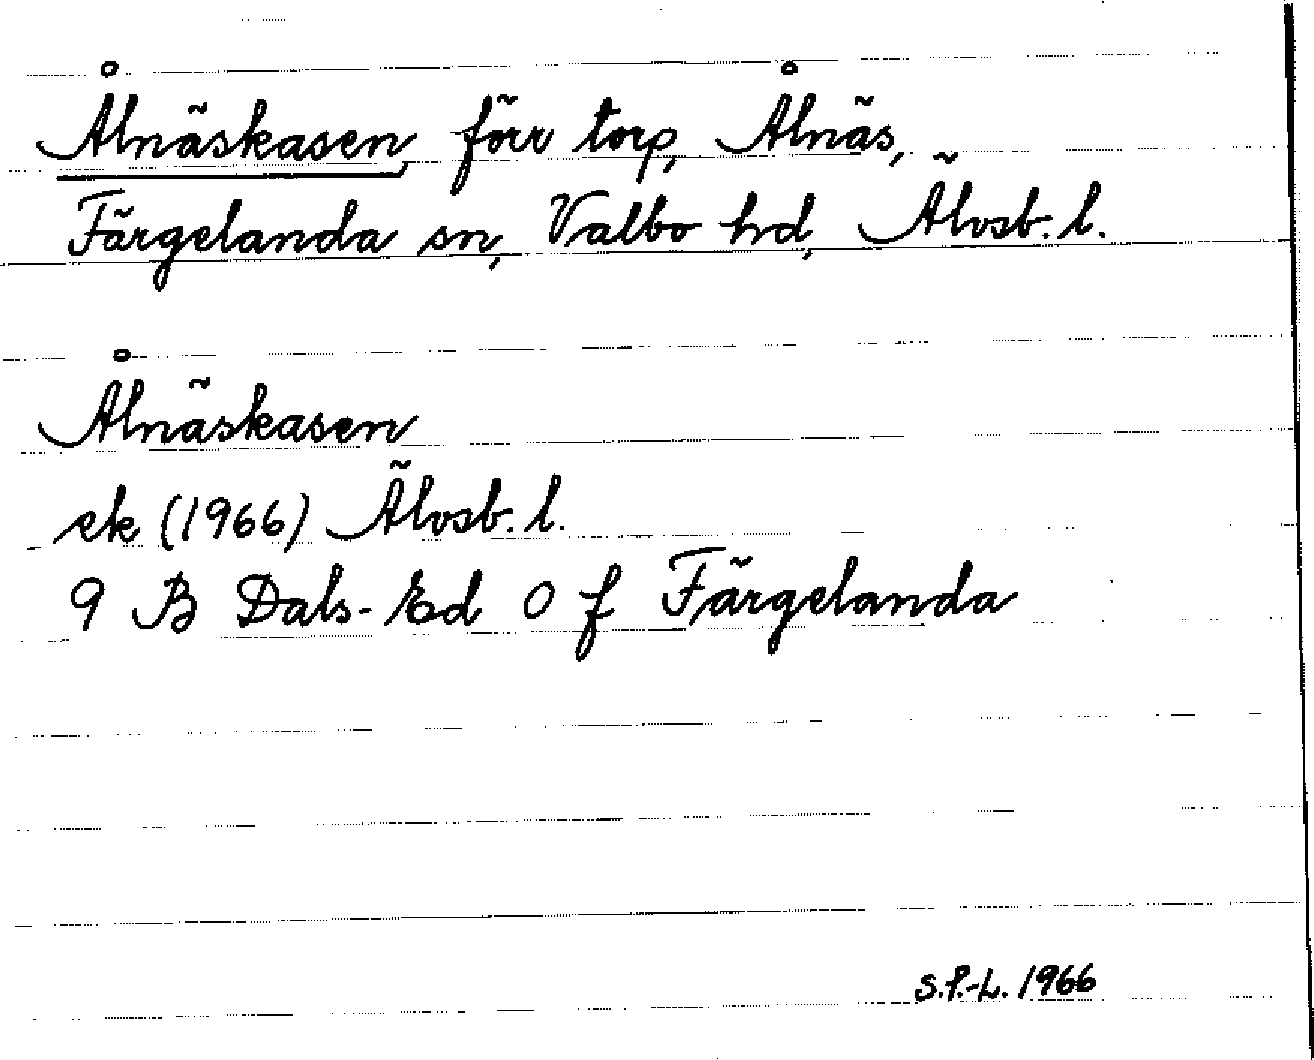 Ålnäskasen, förr torp, Ålnäs,
Färgelanda sn, Valbo hd, Älvsb. l.
Ålnäskasen
ek (1966) Älvsb. l.
9 B Dals-Ed 0 f Färgelanda
S.P.-L. 1966